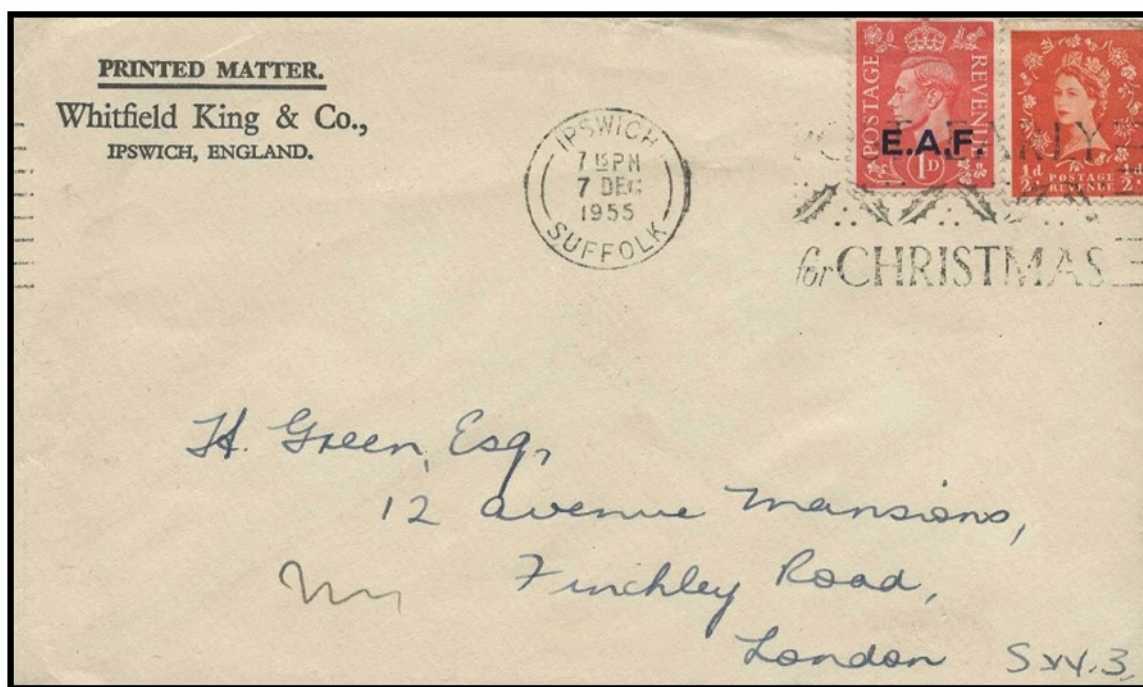 PRINTED MATTER.
Whitfield King & Co.,
IPSWICH, ENGLAND.
IPSWICH
7 15 PM
7 DEC
1955
SUFFOLK
POSTAGE REVENUE
E.A.F.
1D
½d POSTAGE REVENUE ½d
POST EARLY
for CHRISTMAS
H. Green, Esq,
12 avenue mansions,
Finchley Road,
London S.W.3,